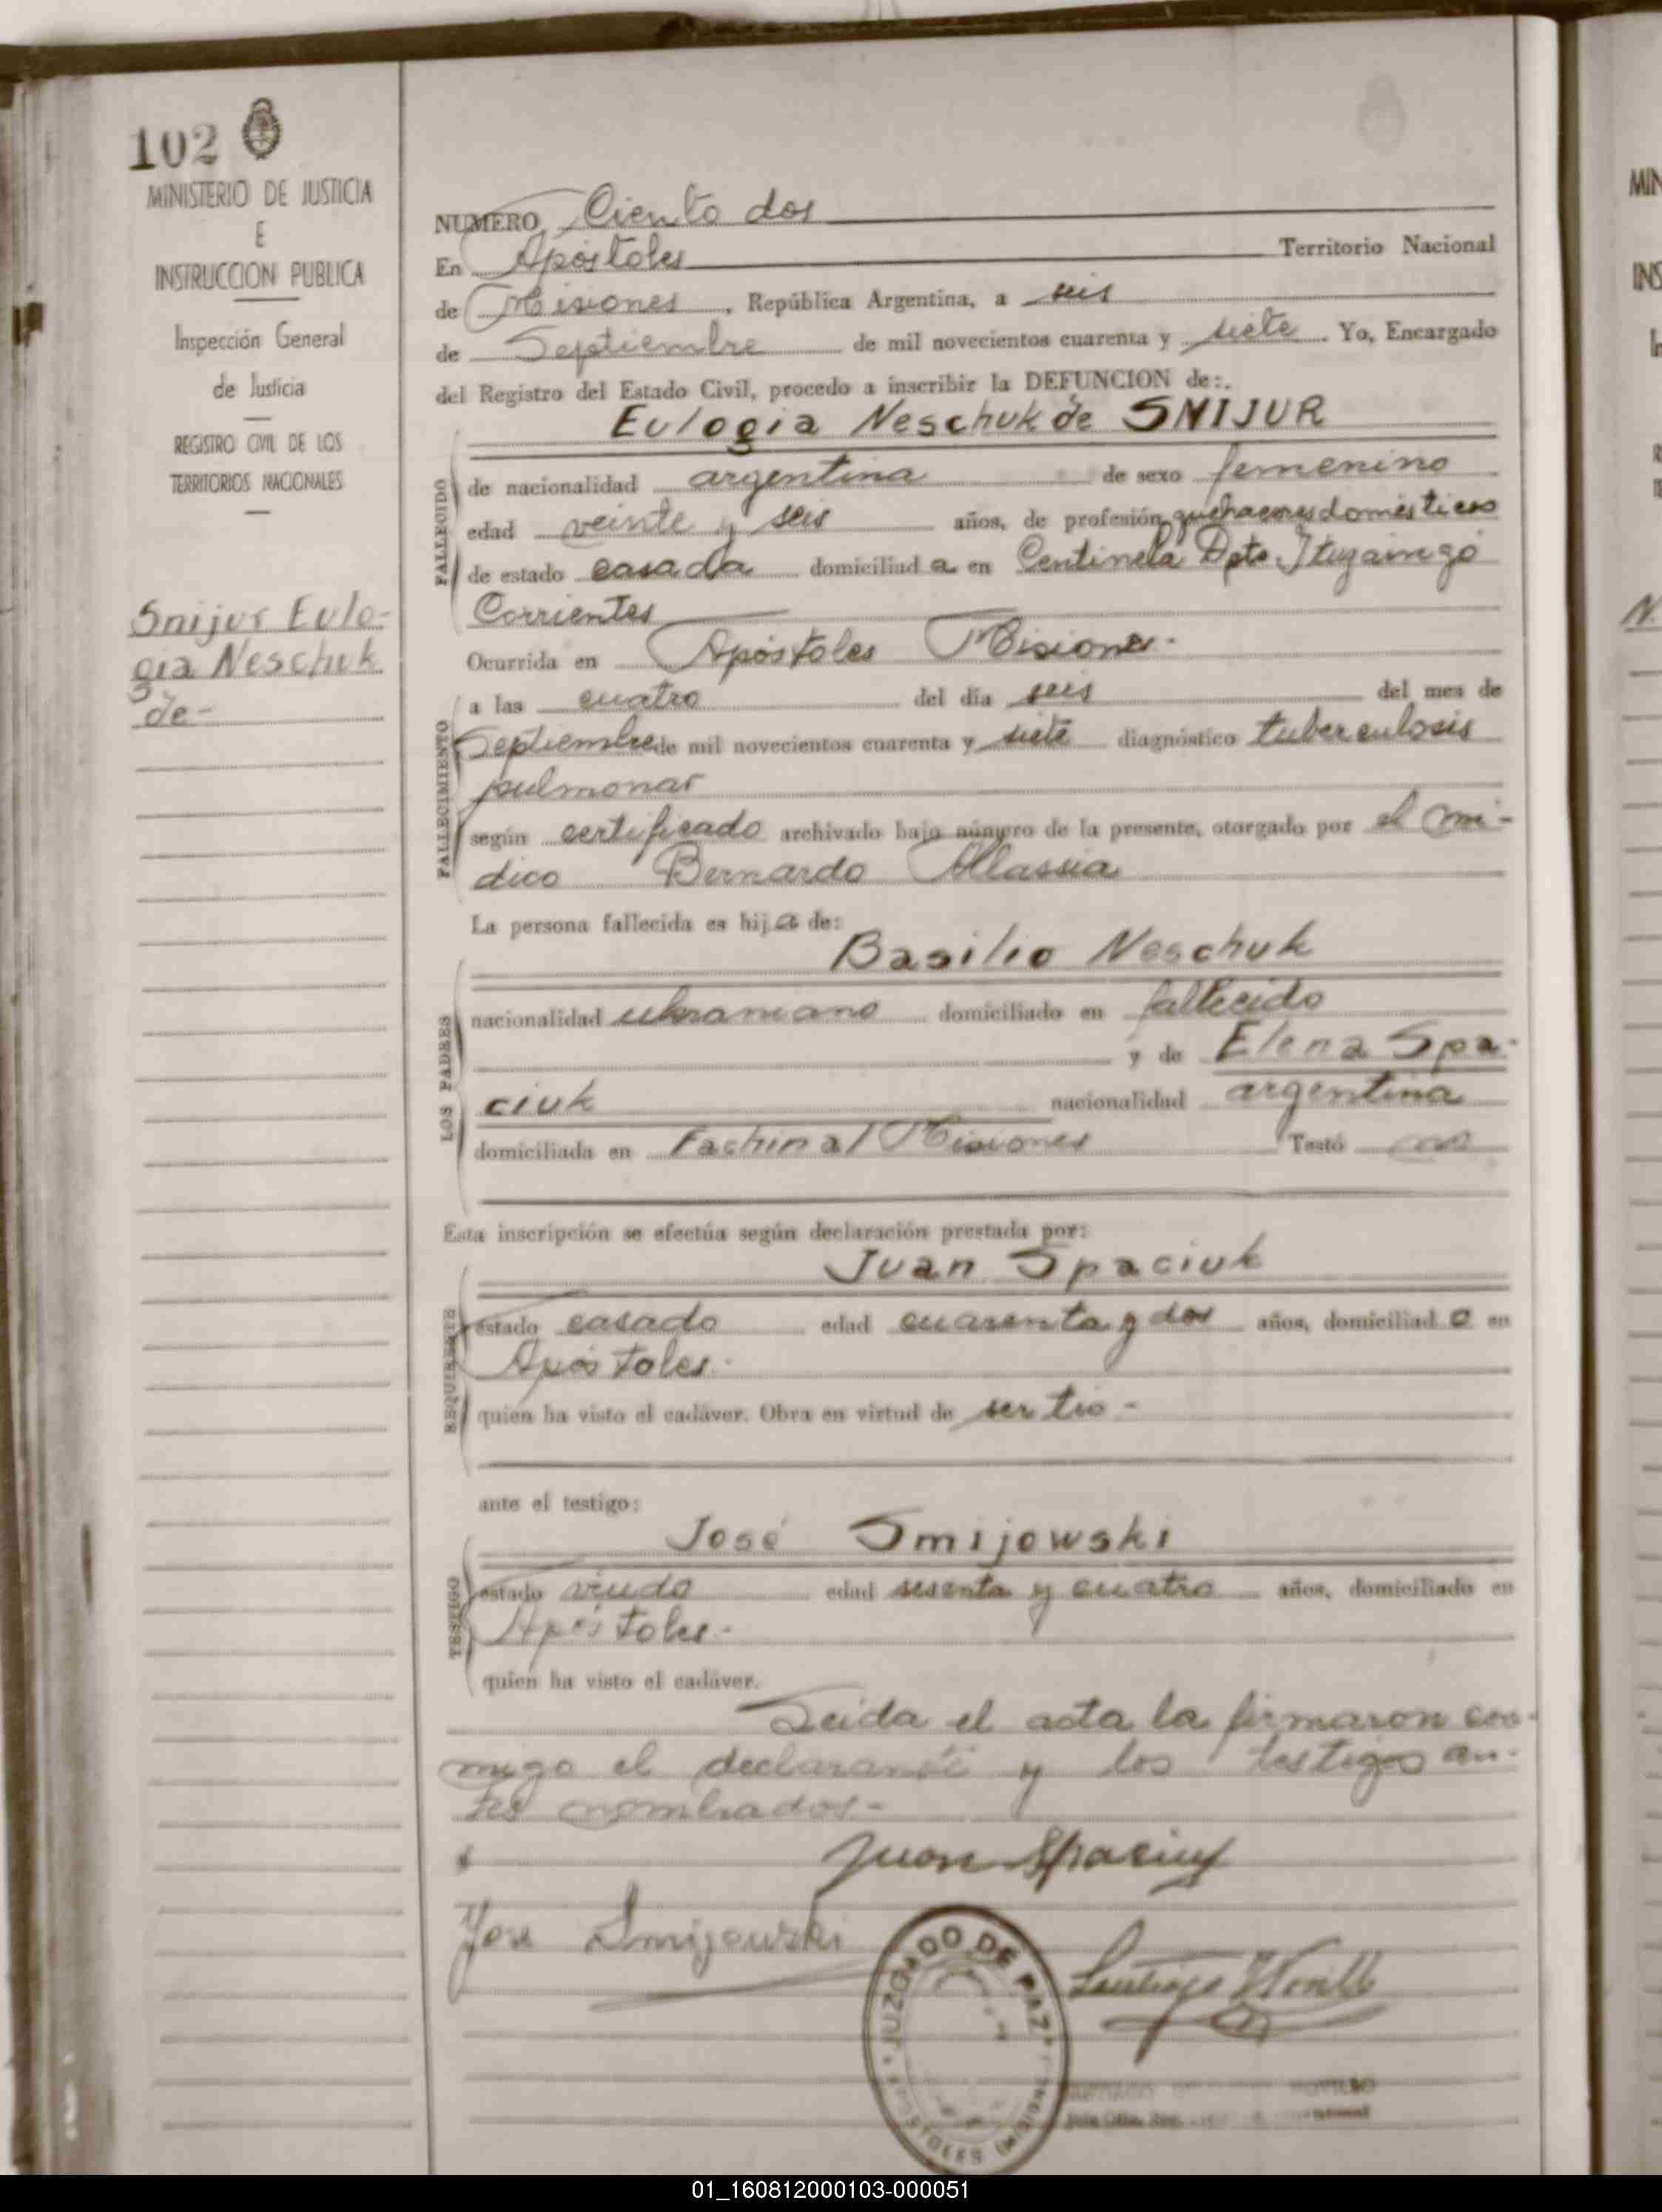 102
MINISTERIO DE JUSTICIA
E
INSTRUCCION PUBLICA
Inspección General
de Justicia
REGISTRO CIVIL DE LOS
TERRITORIOS NACIONALES
Snijur Eulo-
gia Neschuk
de-
NUMERO Ciento dos
En Apóstoles Territorio Nacional
de Misiones, República Argentina, a seis
de Septiembre de mil novecientos cuarenta y siete. Yo, Encargado
del Registro del Estado Civil, procedo a inscribir la DEFUNCION de:.
Eulogia Neschuk de SNIJUR
FALLECIDO
de nacionalidad argentina de sexo femenino
edad veinte y seis años, de profesión quehaceres domésticos
de estado casada domiciliada en Centinela Dpto. Ituzaingó
Corrientes
Ocurrida en Apóstoles Misiones-
FALLECIMIENTO
a las cuatro del día seis del mes de
Septiembre de mil novecientos cuarenta y siete diagnóstico tuberculosis
pulmonar
según certificado archivado bajo número de la presente, otorgado por el mé-
dico Bernardo Allassia
La persona fallecida es hija de:
LOS PADRES
Basilio Neschuk
nacionalidad ukraniano domiciliado en fallecido
y de Elena Spa-
ciuk nacionalidad argentina
domiciliada en Fachinal Misiones Testó
Esta inscripción se efectúa según declaración prestada por:
REQUIRENTE
Juan Spaciuk
estado casado edad cuarenta y dos años, domiciliado en
Apóstoles.
quien ha visto el cadáver. Obra en virtud de ser tío-
ante el testigo:
TESTIGO
José Smijowski
estado viudo edad sesenta y cuatro años, domiciliado en
Apóstoles.-
quien ha visto el cadáver.
Leida el acta la firmaron con-
migo el declarante y los testigos an-
tes nombrados-
Juan Spaciuk
Jose Smijowski
JUZGADO DE PAZ
APOSTOLES (MISIONES)